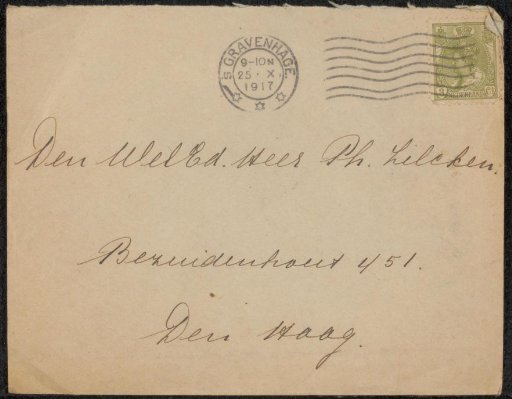 'S GRAVENHAGE.
9-10N
25 · X.
1917
NEDERLAND
Den WelEd. Heer Ph. Zilcken.
Bezuidenhout 451.
Den Haag.